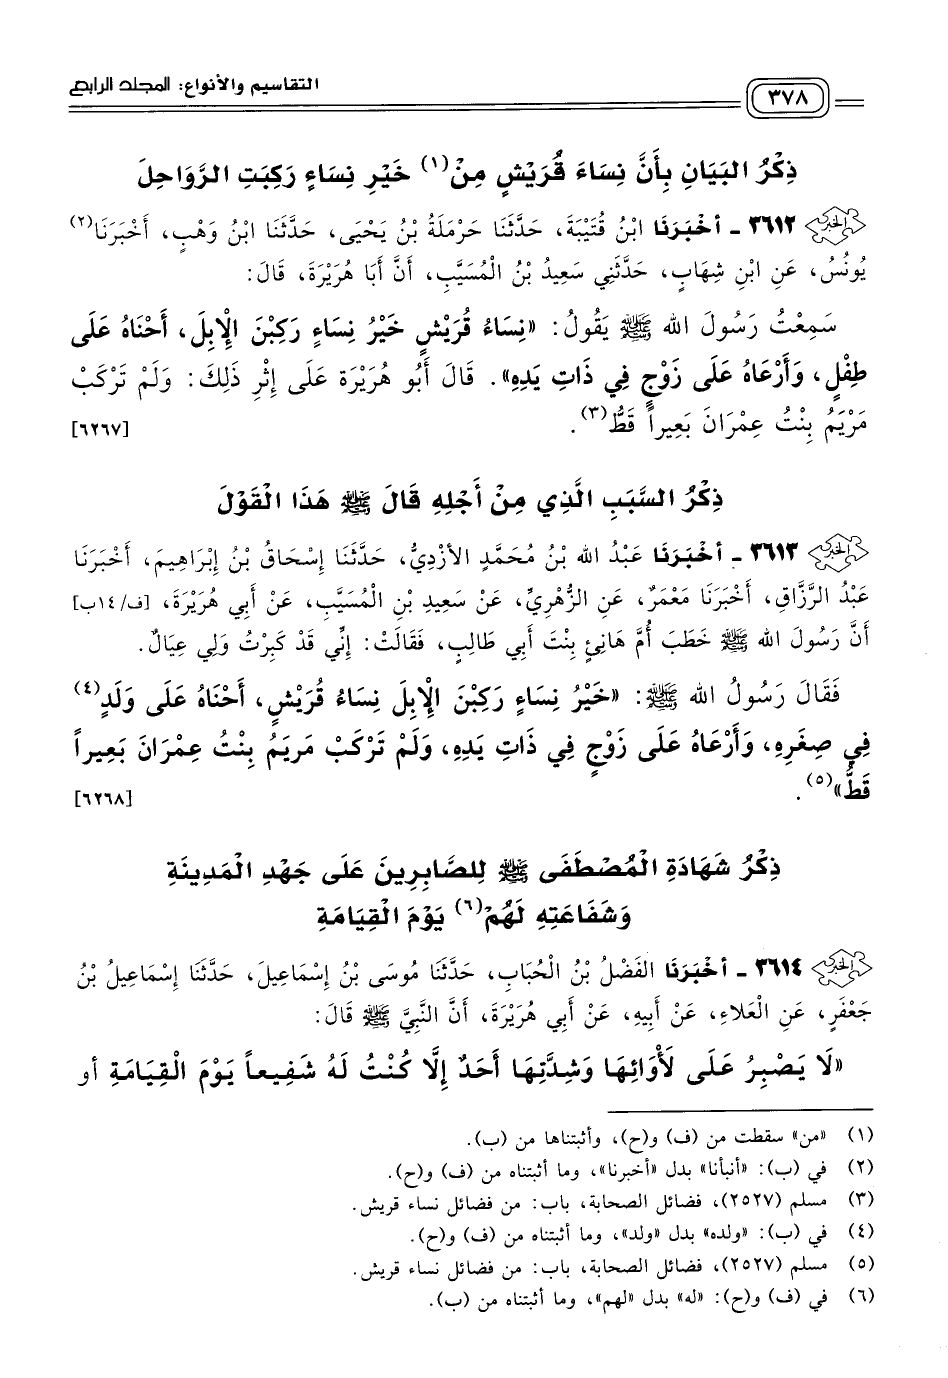 ٣٧٨ التقاسيم والأنواع: المجلد الرابع
ذِكْرُ البَيَانِ بِأَنَّ نِسَاءَ قُرَيْشٍ مِنْ(١) خَيْرِ نِسَاءٍ رَكِبَتِ الرَّوَاحِلَ
٣٦١٢ - أَخْبَرَنَا ابْنُ قُتَيْبَةَ، حَدَّثَنَا حَرْمَلَةُ بْنُ يَحْيَى، حَدَّثَنَا ابْنُ وَهْبٍ، أَخْبَرَنَا(٢)
يُونُسُ، عَنِ ابْنِ شِهَابٍ، حَدَّثَنِي سَعِيدُ بْنُ الْمُسَيَّبِ، أَنَّ أَبَا هُرَيْرَةَ، قَالَ:
سَمِعْتُ رَسُولَ الله ﷺ يَقُولُ: «نِسَاءُ قُرَيْشٍ خَيْرُ نِسَاءٍ رَكِبْنَ الإِبِلَ، أَحْنَاهُ عَلَى
طِفْلٍ، وَأَرْعَاهُ عَلَى زَوْجٍ فِي ذَاتِ يَدِهِ». قَالَ أَبُو هُرَيْرَةَ عَلَى إِثْرِ ذَلِكَ: وَلَمْ تَرْكَبْ
مَرْيَمُ بِنْتُ عِمْرَانَ بَعِيراً قَطُّ(٣). [٦٢٦٧]
ذِكْرُ السَّبَبِ الَّذِي مِنْ أَجْلِهِ قَالَ ﷺ هَذَا الْقَوْلَ
٣٦١٣ - أَخْبَرَنَا عَبْدُ الله بْنُ مُحَمَّدٍ الأَزْدِيُّ، حَدَّثَنَا إِسْحَاقُ بْنُ إِبْرَاهِيمَ، أَخْبَرَنَا
عَبْدُ الرَّزَّاقِ، أَخْبَرَنَا مَعْمَرٌ، عَنِ الزُّهْرِيِّ، عَنْ سَعِيدِ بْنِ الْمُسَيَّبِ، عَنْ أَبِي هُرَيْرَةَ، [ف/١٤ب]
أَنَّ رَسُولَ الله ﷺ خَطَبَ أُمَّ هَانِئٍ بِنْتَ أَبِي طَالِبٍ، فَقَالَتْ: إِنِّي قَدْ كَبِرْتُ وَلِي عِيَالٌ.
فَقَالَ رَسُولُ الله ﷺ: «خَيْرُ نِسَاءٍ رَكِبْنَ الإِبِلَ نِسَاءُ قُرَيْشٍ، أَحْنَاهُ عَلَى وَلَدٍ(٤)
فِي صِغَرِهِ، وَأَرْعَاهُ عَلَى زَوْجٍ فِي ذَاتِ يَدِهِ، وَلَمْ تَرْكَبْ مَرْيَمُ بِنْتُ عِمْرَانَ بَعِيراً
قَطُّ»(٥). [٦٢٦٨]
ذِكْرُ شَهَادَةِ الْمُصْطَفَى ﷺ لِلصَّابِرِينَ عَلَى جَهْدِ الْمَدِينَةِ
وَشَفَاعَتِهِ لَهُمْ(٦) يَوْمَ الْقِيَامَةِ
٣٦١٤ - أَخْبَرَنَا الفَضْلُ بْنُ الْحُبَابِ، حَدَّثَنَا مُوسَى بْنُ إِسْمَاعِيلَ، حَدَّثَنَا إِسْمَاعِيلُ بْنُ
جَعْفَرٍ، عَنِ الْعَلاءِ، عَنْ أَبِيهِ، عَنْ أَبِي هُرَيْرَةَ، أَنَّ النَّبِيَّ ﷺ قَالَ:
«لَا يَصْبِرُ عَلَى لَأْوَائِهَا وَشِدَّتِهَا أَحَدٌ إِلَّا كُنْتُ لَهُ شَفِيعاً يَوْمَ الْقِيَامَةِ أو
(١) «من» سقطت من (ف) و(ح)، وأثبتناها من (ب).
(٢) في (ب): «أنبأنا» بدل «أخبرنا»، وما أثبتناه من (ف) و(ح).
(٣) مسلم (٢٥٢٧)، فضائل الصحابة، باب: من فضائل نساء قريش.
(٤) في (ب): «ولده» بدل «ولد»، وما أثبتناه من (ف) و(ح).
(٥) مسلم (٢٥٢٧)، فضائل الصحابة، باب: من فضائل نساء قريش.
(٦) في (ف) و(ح): «له» بدل «لهم»، وما أثبتناه من (ب).